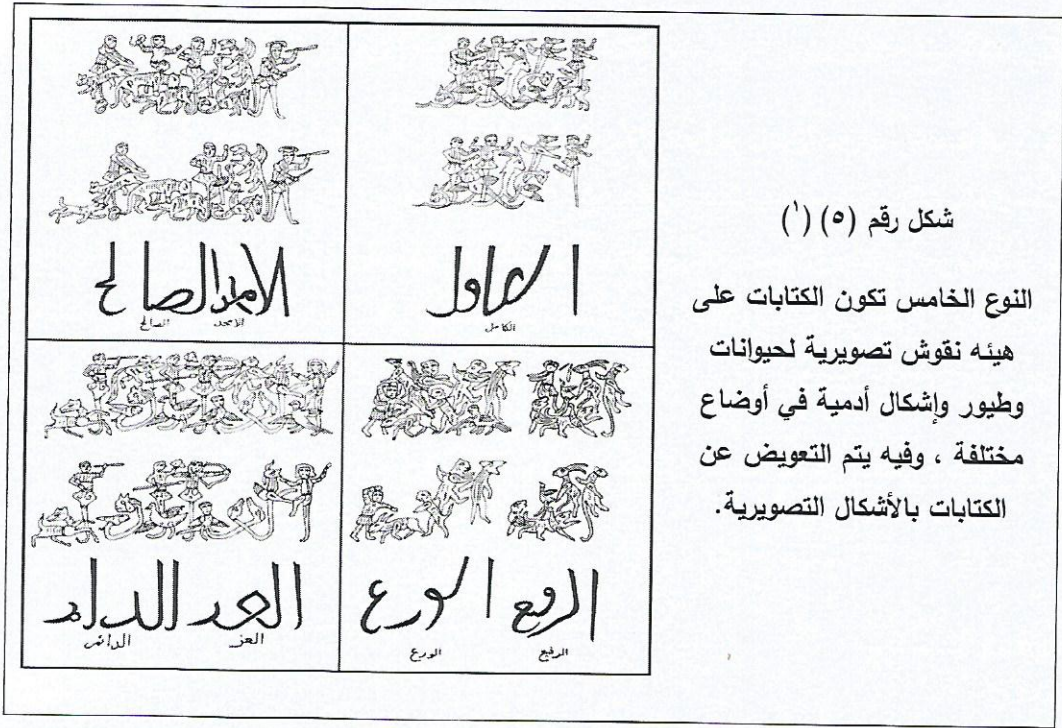 شكل رقم (٥) (١)
النوع الخامس تكون الكتابات على
هيئه نقوش تصويرية لحيوانات
وطيور وإشكال أدمية في أوضاع
مختلفة ، وفيه يتم التعويض عن
الكتابات بالأشكال التصويرية.
الكامل
الامجد الصالح
الرفيع الورع
العز الدائم